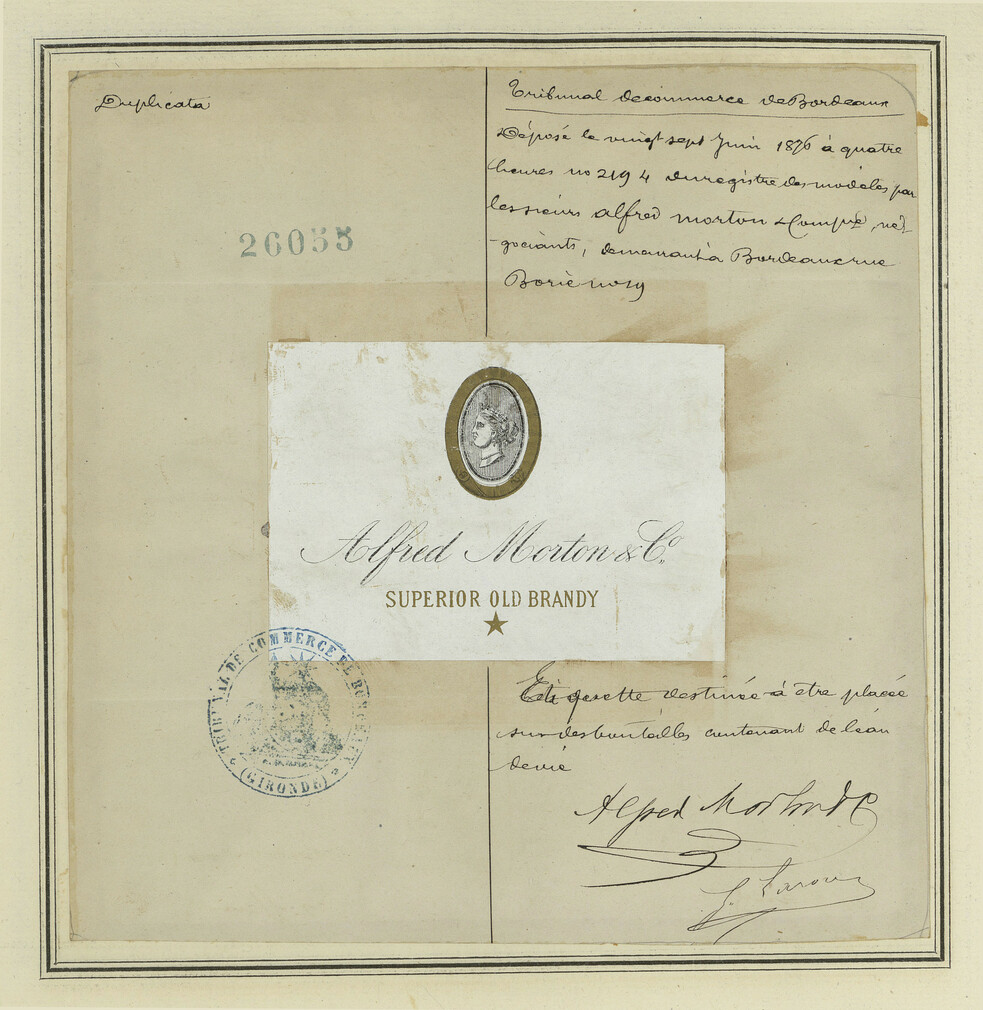 Duplicata
26055
Tribunal de commerce de Bordeaux
Déposé le vingt sept Juin 1876 à quatre
heures no 2194 du registre des modèles par
les sieurs Alfred Morton & Compie, né-
-gociants, demeurant à Bordeaux rue
Borie no 29
Alfred Morton & Co.
SUPERIOR OLD BRANDY
TRIBUNAL DE COMMERCE DE BORDEAUX
(GIRONDE)
Etiquette destinée à être placée
sur des bouteilles contenant de l'eau
de vie
Alfred Morton & C